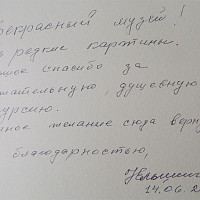 рекрасный музей!
редкие картины.
спасибо за
ательную, душевную
курсию.
ное желание сюда верну
благодарностью,
14.06.2